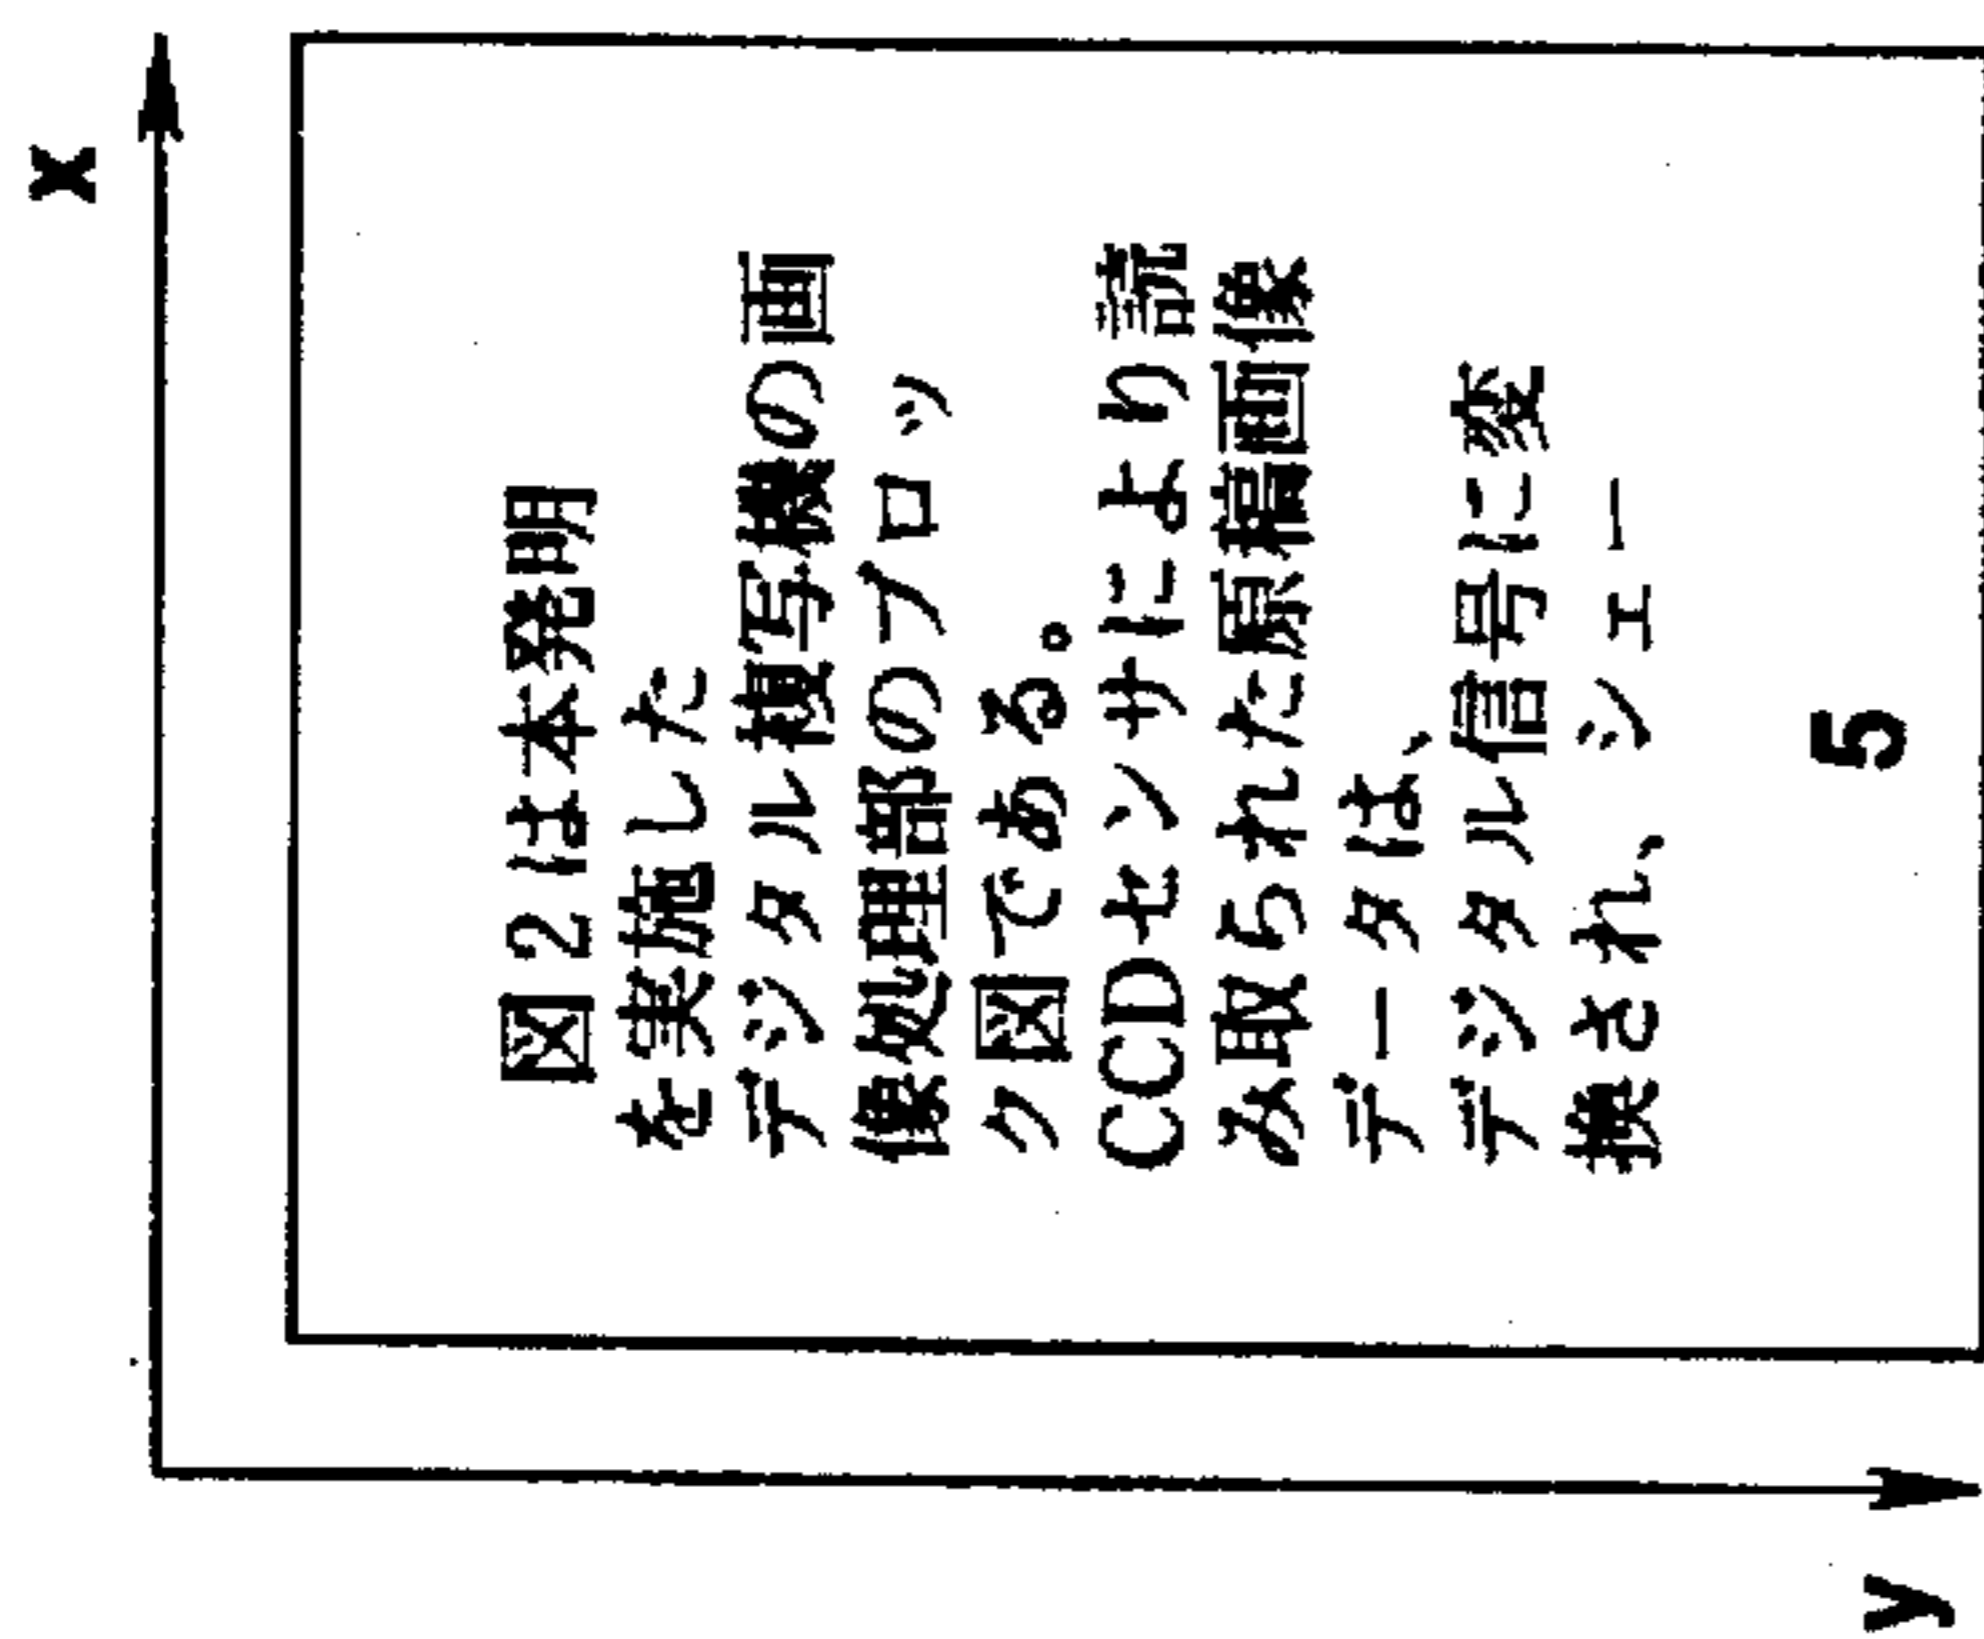 x
図2は本発明
を実施した
デジタル複写機の画
像処理部のブロッ
ク図である。
CCDセンサにより読
み取られた原稿画像
データは、
デジタル信号に変
換され、シェー
5
y